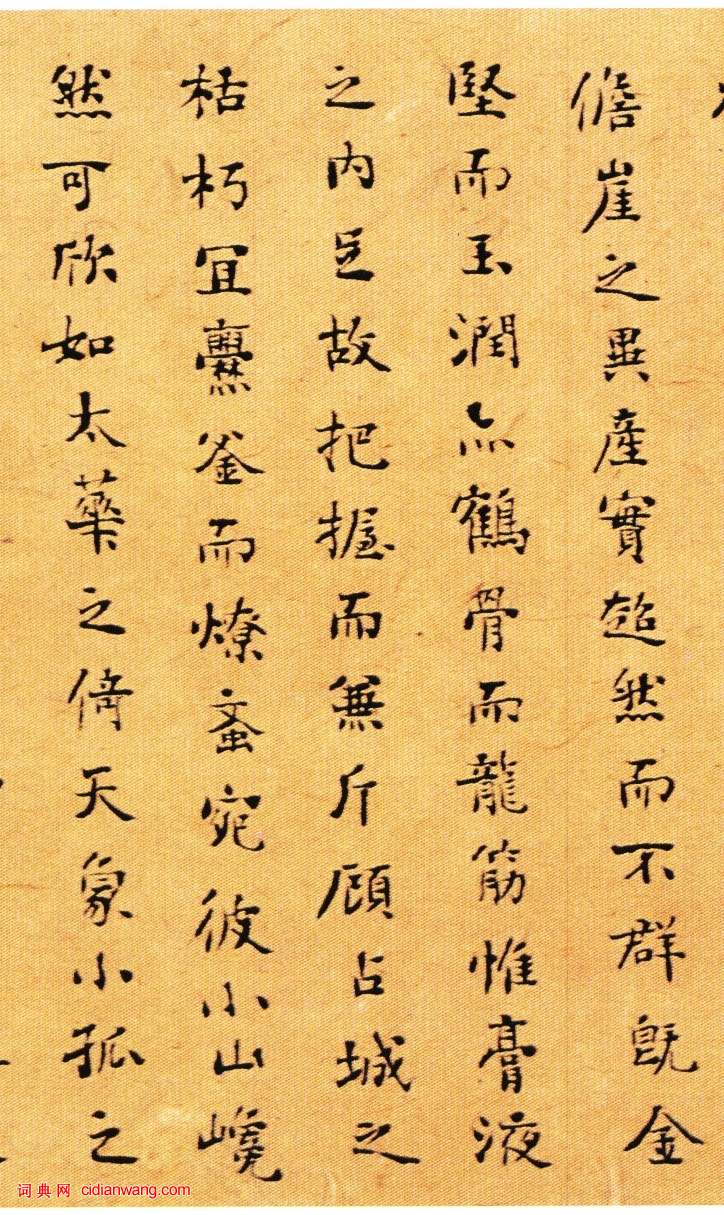 儋崖之異產實超然而不群既金
堅而玉潤亦鶴骨而龍筋惟膏液
之内足故把握而兼斤顧占城之
枯朽宜爨釜而燎蚉宛彼小山巉
然可欣如太華之倚天象小孤之
词典网 cidianwang.com